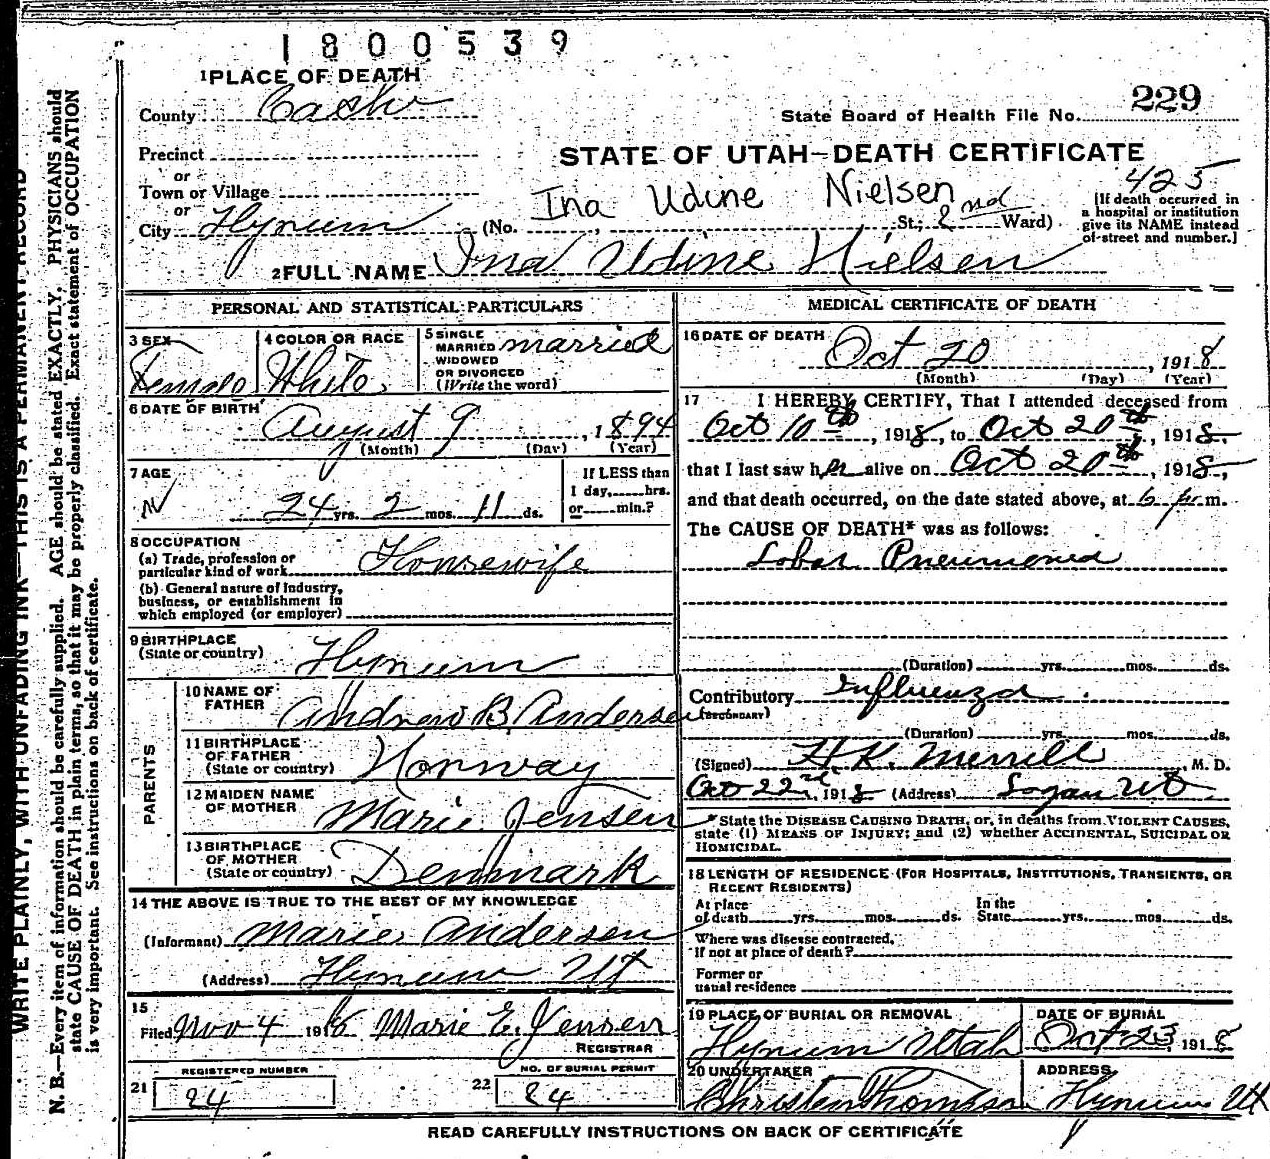 1800539
1 PLACE OF DEATH
County Cache
229
State Board of Health File No.
Precinct
or
STATE OF UTAH—DEATH CERTIFICATE
Town or Village
425
or
Ina Udine Nielsen
City Hyrum (No. St.; 2nd Ward)
[If death occurred in
a hospital or institution
give its NAME instead
of street and number.]
2 FULL NAME Ina Udine Nielsen
PERSONAL AND STATISTICAL PARTICULARS
3 SEX Female
4 COLOR OR RACE White
5 SINGLE
MARRIED
WIDOWED
OR DIVORCED
(Write the word) married
6 DATE OF BIRTH
August 9, 1894
(Month) (Day) (Year)
7 AGE
24 yrs. 2 mos. 11 ds.
If LESS than
1 day, hrs.
or min.?
8 OCCUPATION
(a) Trade, profession or
particular kind of work Housewife
(b) General nature of Industry,
business, or establishment in
which employed (or employer)
9 BIRTHPLACE
(State or country) Hyrum
PARENTS
10 NAME OF
FATHER Andrew B. Andersen
11 BIRTHPLACE
OF FATHER
(State or country) Norway
12 MAIDEN NAME
OF MOTHER Marie Jensen
13 BIRTHPLACE
OF MOTHER
(State or country) Denmark
14 THE ABOVE IS TRUE TO THE BEST OF MY KNOWLEDGE
(Informant) Marie Andersen
(Address) Hyrum Ut
15
Filed Nov 4 191 Marie E. Jensen
REGISTRAR
21 REGISTERED NUMBER
24
22 NO. OF BURIAL PERMIT
24
MEDICAL CERTIFICATE OF DEATH
16 DATE OF DEATH
Oct 20, 1918
(Month) (Day) (Year)
17 I HEREBY CERTIFY, That I attended deceased from
Oct 10th, 1918, to Oct 20th, 1918,
that I last saw her alive on Oct 20th, 1918,
and that death occurred, on the date stated above, at 6 p.m.
The CAUSE OF DEATH* was as follows:
Lobar Pneumonia
(Duration) yrs. mos. ds.
Contributory Influenza
(SECONDARY)
(Duration) yrs. mos. ds.
(Signed) H. K. Merrill, M. D.
Oct 22nd, 1918 (Address) Logan Ut.
*State the DISEASE CAUSING DEATH, or, in deaths from VIOLENT CAUSES,
state (1) MEANS OF INJURY; and (2) whether ACCIDENTAL, SUICIDAL OR
HOMICIDAL.
18 LENGTH OF RESIDENCE (FOR HOSPITALS, INSTITUTIONS, TRANSIENTS, OR
RECENT RESIDENTS)
At place In the
of death yrs. mos. ds. State yrs. mos. ds.
Where was disease contracted,
if not at place of death?
Former or
usual residence
19 PLACE OF BURIAL OR REMOVAL
Hyrum Utah
DATE OF BURIAL
Oct 23, 1918
20 UNDERTAKER
Christen Thomsen
ADDRESS
Hyrum Ut
READ CAREFULLY INSTRUCTIONS ON BACK OF CERTIFICATE
WRITE PLAINLY, WITH UNFADING INK—THIS IS A PERMANENT RECORD
N. B.—Every item of information should be carefully supplied. AGE should be stated EXACTLY. PHYSICIANS should
state CAUSE OF DEATH in plain terms, so that it may be properly classified. Exact statement of OCCUPATION
is very important. See instructions on back of certificate.